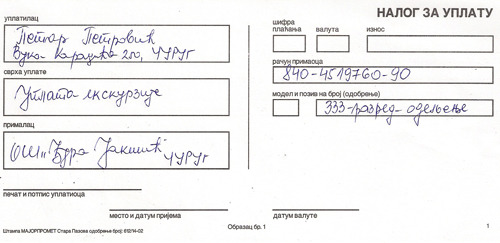 НАЛОГ ЗА УПЛАТУ
уплатилац
Петар Петровић
Вука Караџића 200, ЧУРУГ
сврха уплате
Уплата екскурзије
прималац
ОШ "Ђура Јакшић" ЧУРУГ
печат и потпис уплатиоца
место и датум пријема
шифра плаћања
валута
износ
рачун примаоца
840-4519760-90
модел и позив на број (одобрење)
333-разред-одељење
датум валуте
Штампа МАЈОРПРОМЕТ Стара Пазова одобрење број: 612/14-02
Образац бр. 1
1